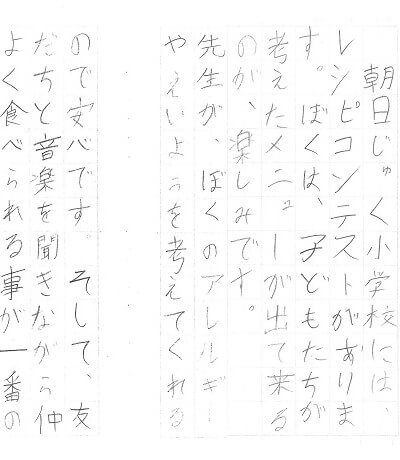 朝日じゅく小学校には、
レシピコンテストがありま
す。ぼくは、子どもたちが
考えたメニューが出て来る
のが、楽しみです。
先生が、ぼくのアレルギー
やえいようを考えてくれる
ので安心です。そして、友
だちと音楽を聞きながら仲
よく食べられる事が一番の